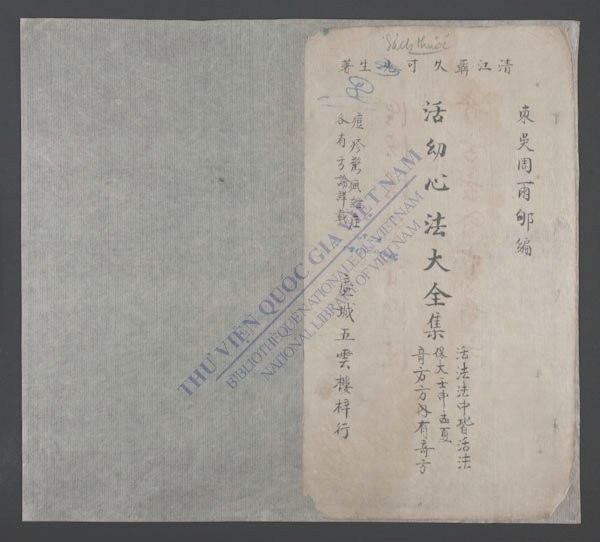 Sách thuốc
清江聶久可先生著
東吳周雨郇編
活幼心法大全集
活法法中皆活法
保大壬申孟夏
奇方方内有奇方
痘疹驚風雜症
各有方論詳載
城五雲樓梓行
THƯ VIỆN QUỐC GIA VIỆT NAM
BIBLIOTHEQUE NATIONALE DU VIETNAM
NATIONAL LIBRARY OF VIETNAM